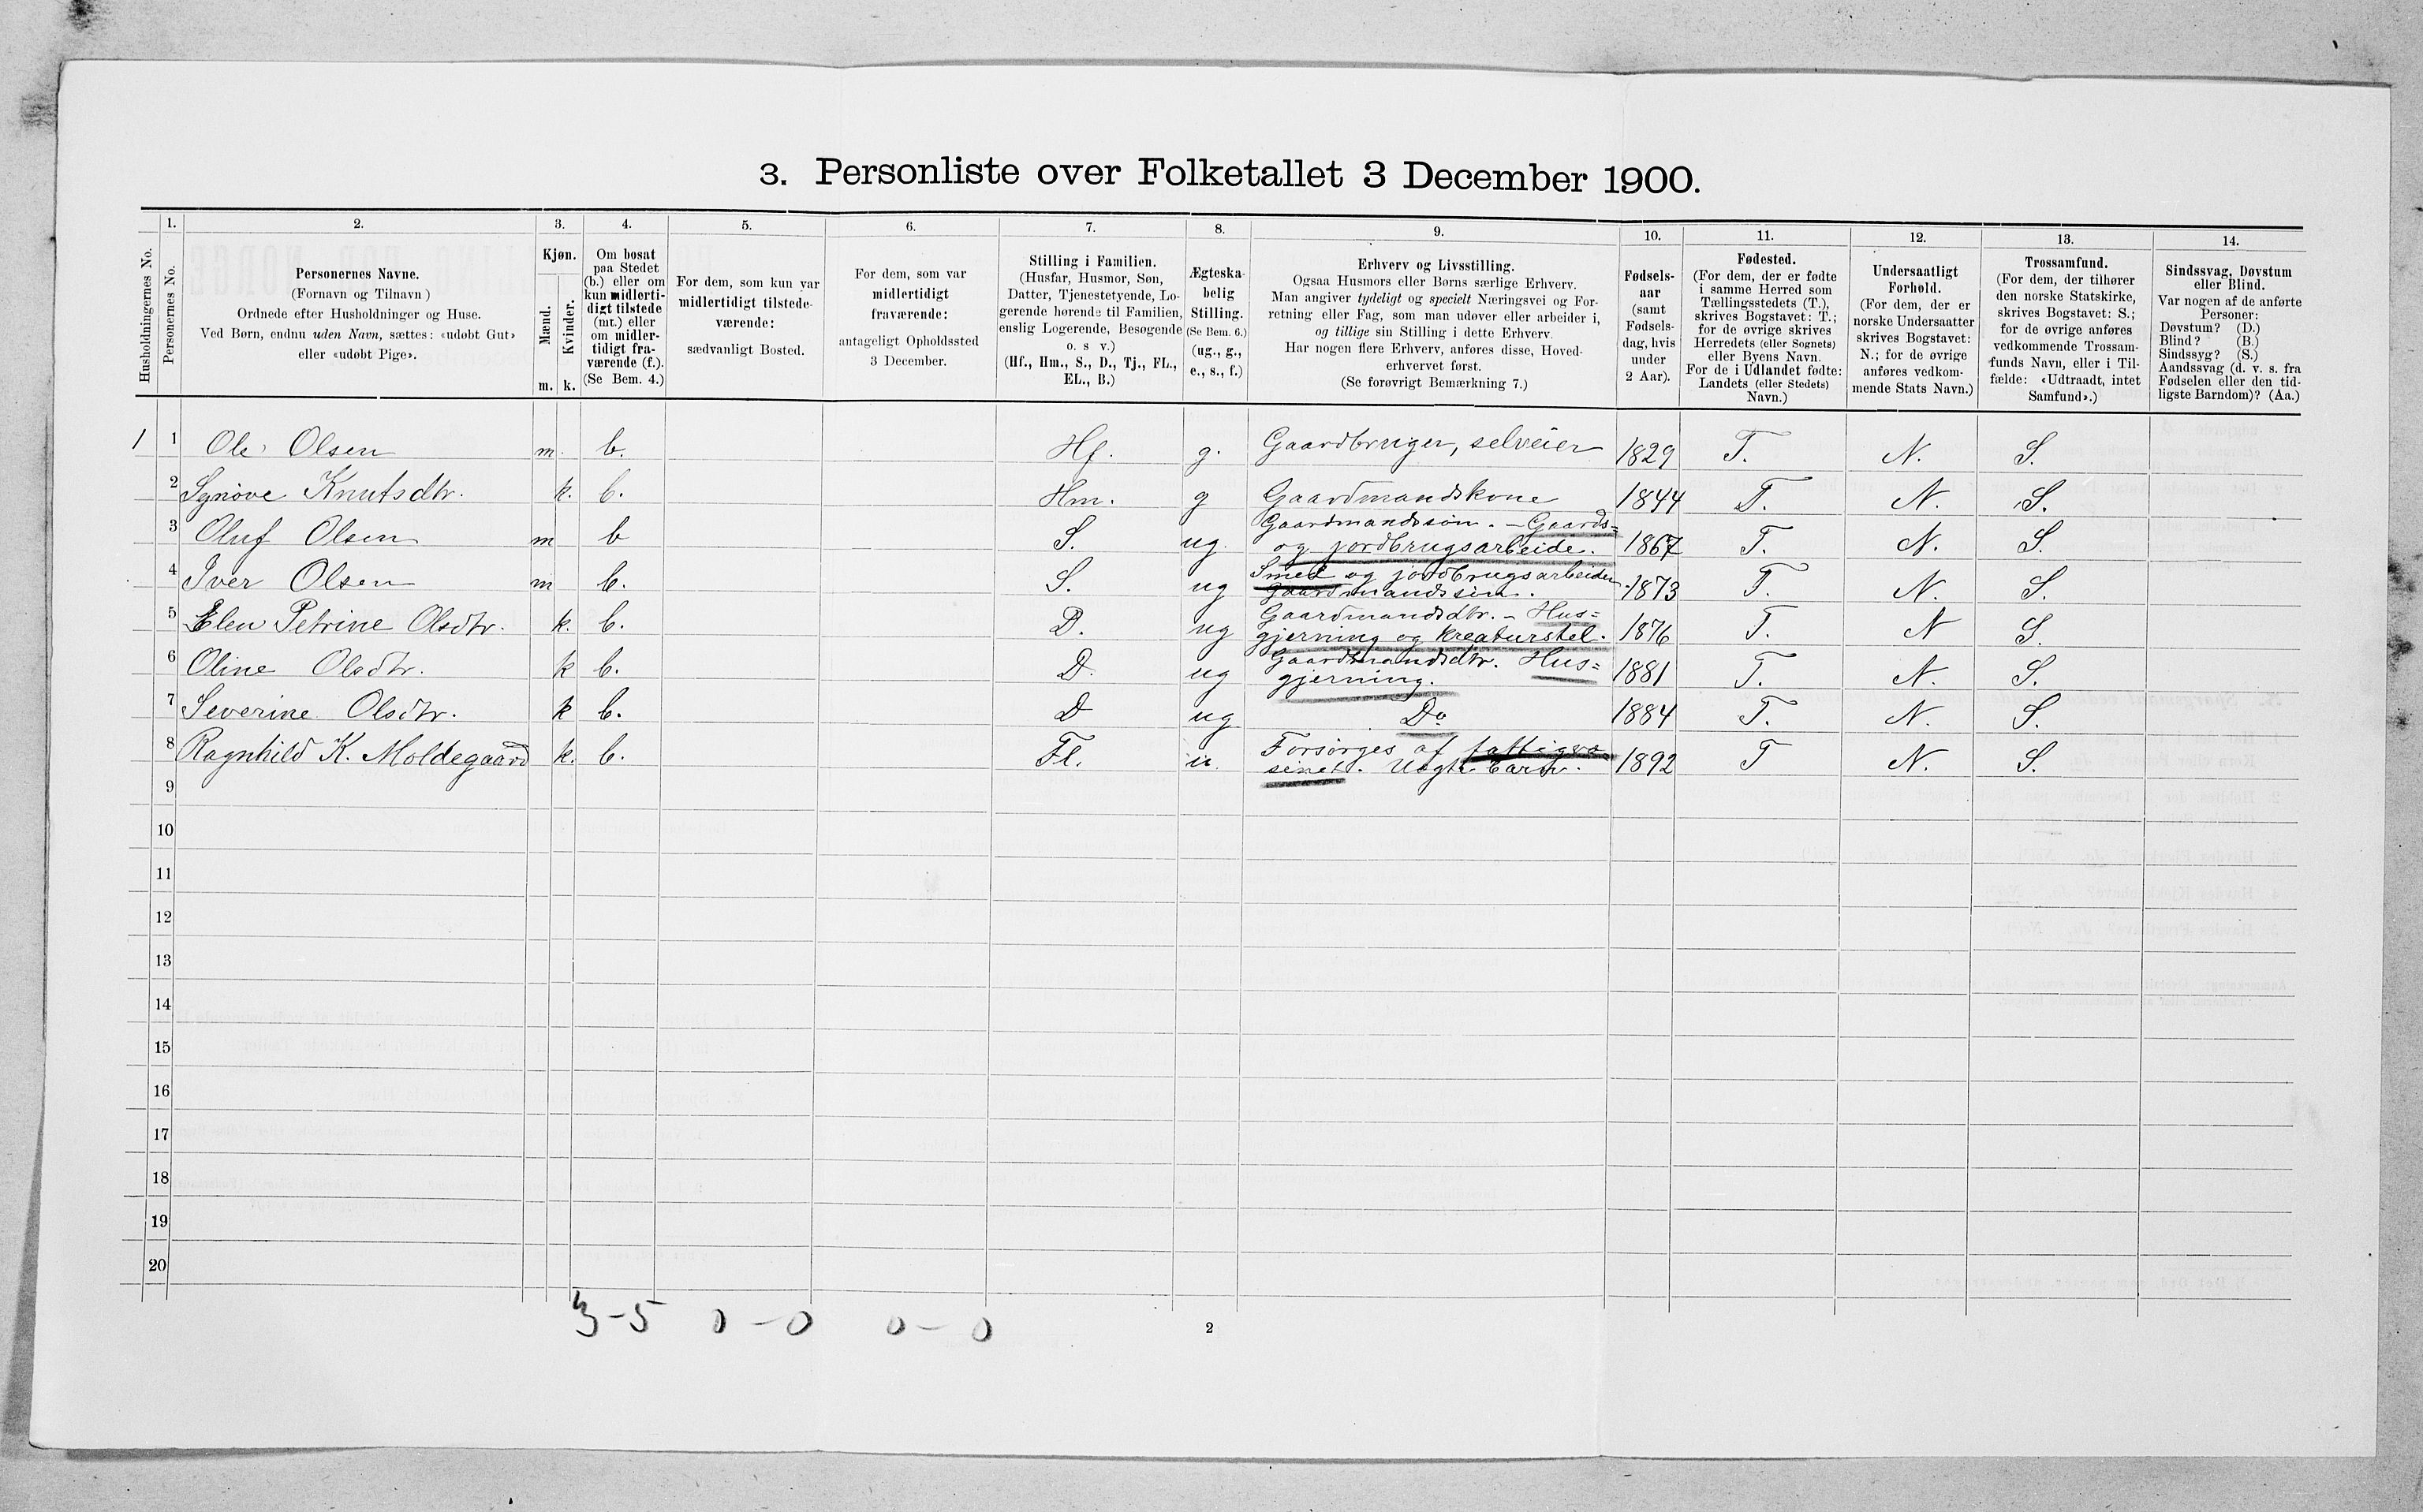 3. Personliste over Folketallet 3 December 1900.
1. 2. 3. 4. 5. 6. 7. 8. 9. 10. 11. 12. 13. 14.
Husholdningernes No.
Personernes No.
Personernes Navne.
(Fornavn og Tilnavn)
Ordnede efter Husholdninger og Huse.
Ved Børn, endnu uden Navn, sættes: «udøbt Gut»
eller «udøbt Pige».
Kjøn.
Mænd.
Kvinder.
m. k.
Om bosat
paa Stedet
(b.) eller om
kun midlerti-
digt tilstede
(mt.) eller
om midler-
tidigt fra-
værende (f.).
(Se Bem. 4.)
For dem, som kun var
midlertidigt tilstede-
værende:
sædvanligt Bosted.
For dem, som var
midlertidigt
fraværende:
antageligt Opholdssted
3 December.
Stilling i Familien.
(Husfar, Husmor, Søn,
Datter, Tjenestetyende, Lo-
gerende hørende til Familien,
enslig Logerende, Besøgende
o. s v.)
(Hf., Hm., S., D., Tj., FL.,
EL., B.)
Ægteska-
belig
Stilling.
(Se Bem. 6.)
(ug., g.,
e., s., f.)
Erhverv og Livsstilling.
Ogsaa Husmors eller Børns særlige Erhverv.
Man angiver tydeligt og specielt Næringsvei og For-
retning eller Fag, som man udøver eller arbeider i,
og tillige sin Stilling i dette Erhverv.
Har nogen flere Erhverv, anføres disse, Hoved-
erhvervet først.
(Se forøvrigt Bemærkning 7.)
Fødsels-
aar
(samt
Fødsels-
dag, hvis
under
2 Aar).
Fødested.
(For dem, der er fødte
i samme Herred som
Tællingsstedets (T.),
skrives Bogstavet: T.;
for de øvrige skrives
Herredets (eller Sognets)
eller Byens Navn.
For de i Udlandet fødte:
Landets (eller Stedets)
Navn.)
Undersaatligt
Forhold.
(For dem, der er
norske Undersaatter
skrives Bogstavet:
N.; for de øvrige
anføres vedkom-
mende Stats Navn.)
Trossamfund.
(For dem, der tilhører
den norske Statskirke,
skrives Bogstavet: S.;
for de øvrige anføres
vedkommende Trossam-
funds Navn, eller i Til-
fælde: «Udtraadt, intet
Samfund».)
Sindssvag, Døvstum
eller Blind.
Var nogen af de anførte
Personer:
Døvstum? (D.)
Blind? (B.)
Sindssyg? (S.)
Aandssvag (d. v. s. fra
Fødselen eller den tid-
ligste Barndom)? (Aa.)
1 1 Ole Olsen m. b. Hf. g. Gaardbruger, selveier 1829 T. N. S.
2 Synøve Knutsdtr. k. b. Hm. g Gaardmandskone 1844 T. N. S.
3 Oluf Olsen m b S. ug. Gaardmandssøn. - Gaards=
og jordbrugsarbeide. 1867 T. N. S.
4 Iver Olsen m b. S. ug Smed og jordbrugsarbeider
gaardmandssøn. 1873 T. N. S.
5 Elen Petrine Olsdtr. k. b. D. ug Gaardmandsdtr. - Hus=
gjerning og kreaturstel. 1876 T. N S.
6 Oline Olsdtr. k b. D. ug Gaardmandsdtr. Hus=
gjerning. 1881 T. N. S.
7 Severine Olsdtr. k b. D ug Do 1884 T. N. S.
8 Ragnhild K. Moldegaard k. b. Fl. u. Forsørges af fattigvæ
senet. Uægte barn. 1892 T N. S.
9
10
11
12
13
14
15
16
17
18
19
20
3-5 0-0 0-0
2